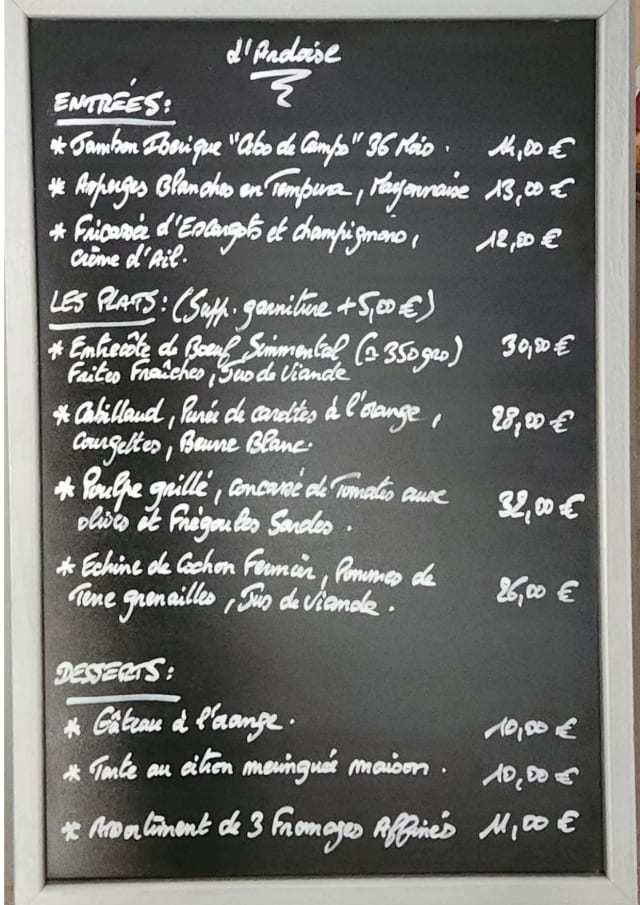 L'Ardoise
ENTRÉES:
* Jambon Iberique "Cebo de Campo" 36 Mois. 14,00 €
* Asperges Blanches en Tempura, Mayonnaise 13,00 €
* Fricassée d'Escargots et champignons, 12,00 €
Crème d'Ail.
LES PLATS: (Supp. garniture +5,00 €)
* Entrecôte de Boeuf Simmental (≃ 350grs) 30,00 €
Frites Fraîches, Jus de Viande
* Cabillaud, Purée de carottes à l'orange, 28,00 €
Courgettes, Beurre Blanc.
* Poulpe grillé, concassé de Tomates aux 32,00 €
olives et Frégoules Sardes.
* Echine de Cochon Fermier, Pommes de 26,00 €
Terre grenailles, Jus de Viande.
DESSERTS:
* Gâteau à l'orange. 10,00 €
* Tarte au citron meringuée maison. 10,00 €
* Assortiment de 3 Fromages Affinés 11,00 €